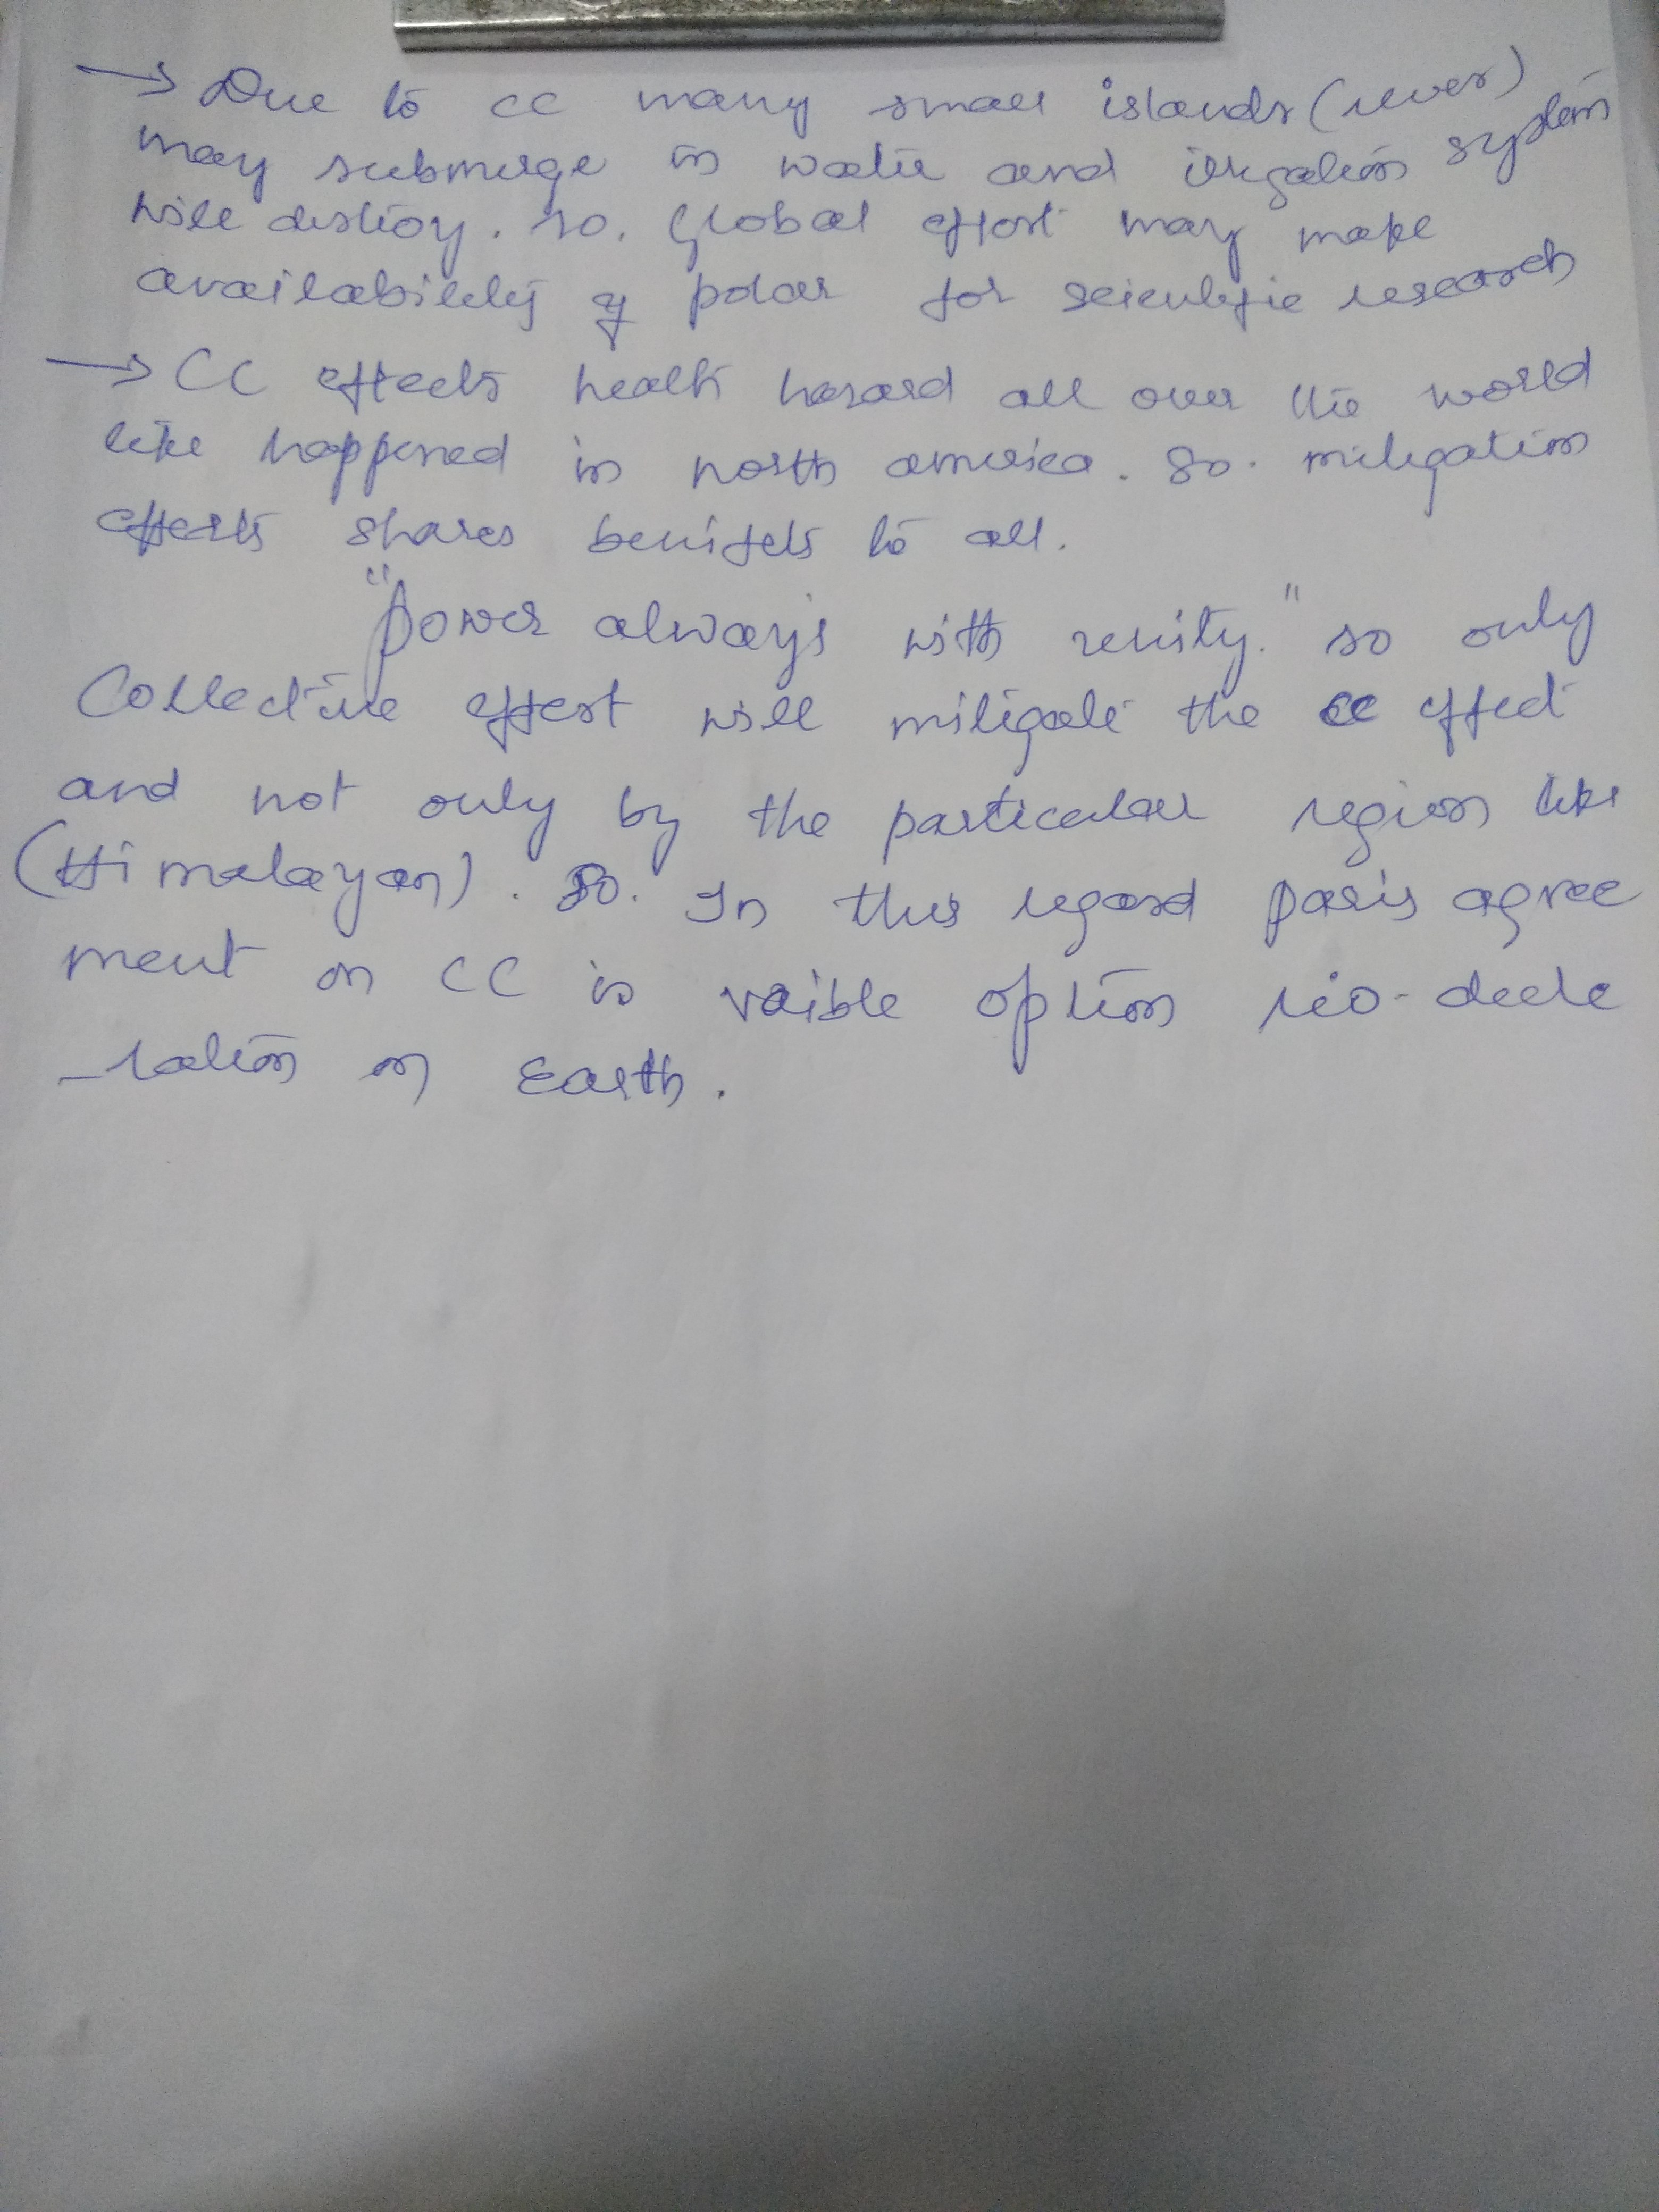 → Due to cc many small islands (rever)
may submerge in water and irrigation system
will distroy. so. Global effort may make
availability of polar for scientific research
→ CC effects health hazard all over the world
like happened in north america. So. mitigation
efferts shares benifets to all.
"Power always with unity." so only
Collective effert will mitigate the cc effect
and not only by the particular region like
(Himalayan). So. In this regard paris agree
ment on CC is vaible option rio-decle
-ration on Earth.